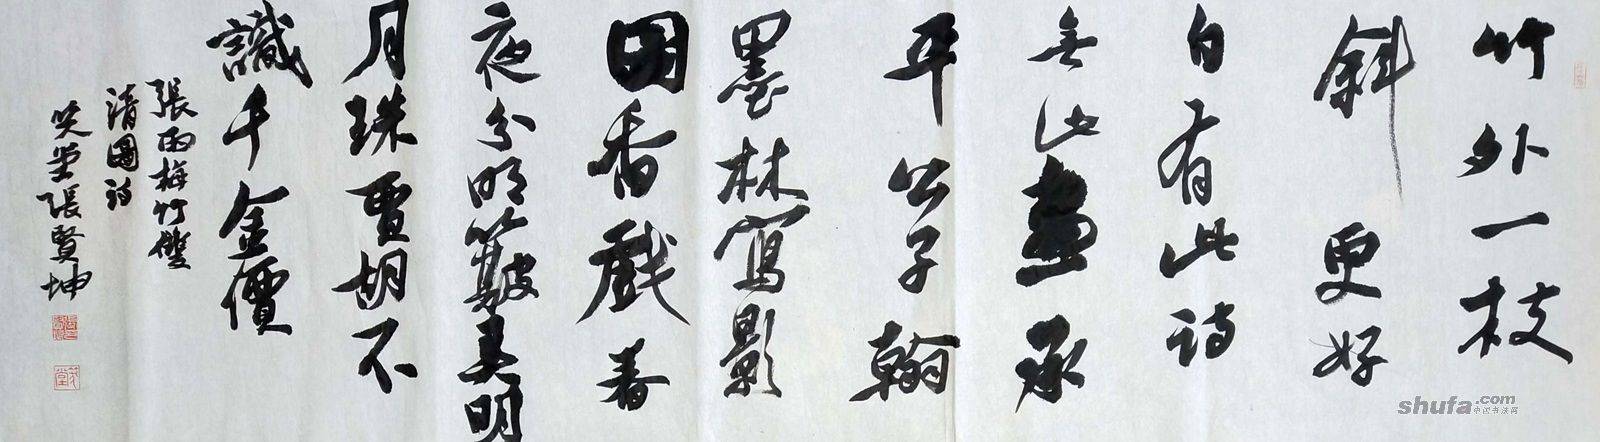 竹外一枝
斜更好
自有此詩
無此畫承
平公子翰
墨林寫影
國香戲春
夜分明簸弄明
月珠賈胡不
識千金價
張雨梅竹雙
清圖詩
笑堂張賢坤
笑堂
shufa.com
中国书法网